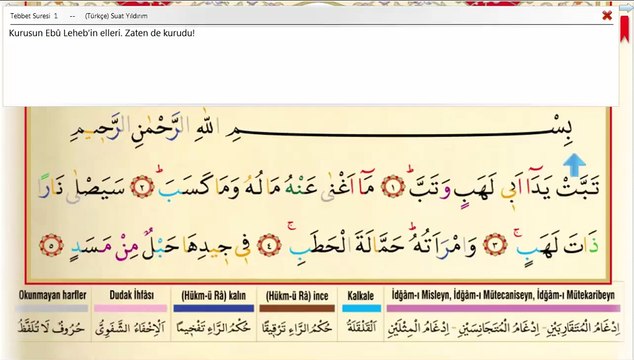 Tebbet Suresi 1 -- (Türkçe) Suat Yıldırım
Kurusun Ebû Leheb'in elleri. Zaten de kurudu!
بِسْمِ اللهِ الرَّحْمٰنِ الرَّحِيمِ
تَبَّتْ يَدَٓا اَبِي لَهَبٍ وَتَبَّ ۜ ١ مَٓا اَغْنٰى عَنْهُ مَالُهُ وَمَا كَسَبَ ۜ ٢ سَيَصْلٰى نَارًا
ذَاتَ لَهَبٍ ۚ ٣ وَامْرَاَتُهُ ۜ حَمَّالَةَ الْحَطَبِ ۚ ٤ فِي جِيدِهَا حَبْلٌ مِنْ مَسَدٍ ٥
Okunmayan harfler Dudak İhfâsı (Hükm-ü Râ) kalın (Hükm-ü Râ) ince Kalkale İdğâm-ı Misleyn, İdğâm-ı Mütecaniseyn, İdğâm-ı Mütekaribeyn
حُرُوفٌ لَا تُلَفَّظُ اَلْاِخْفَاءُ الشَّفَوِيُّ حُكْمُ الرَّاءِ تَفْخِيمًا حُكْمُ الرَّاءِ تَرْقِيقًا اَلْقَلْقَلَةُ اِدْغَامُ الْمِثْلَيْنِ - اِدْغَامُ الْمُتَجَانِسَيْنِ - اِدْغَامُ الْمُتَقَارِبَيْنِ